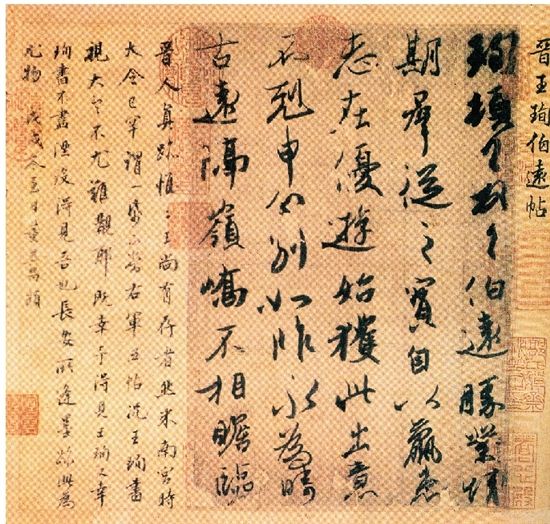 晉王珣伯遠帖
珣頓首頓首伯遠勝業情
期羣從之寶自以羸患
志在優遊始獲此出意
不剋申分別如昨永為疇
古遠隔嶺嶠不相瞻臨
晉人真跡惟二王尚有存者然米南宮時
大令已罕謂一紙可當右軍五帖況王珣書
視大令不尤難覯耶既幸予得見王珣又幸
珣書不盡湮沒得見吾也長安所逢墨跡此為
尤物 戊戌冬至日董其昌題